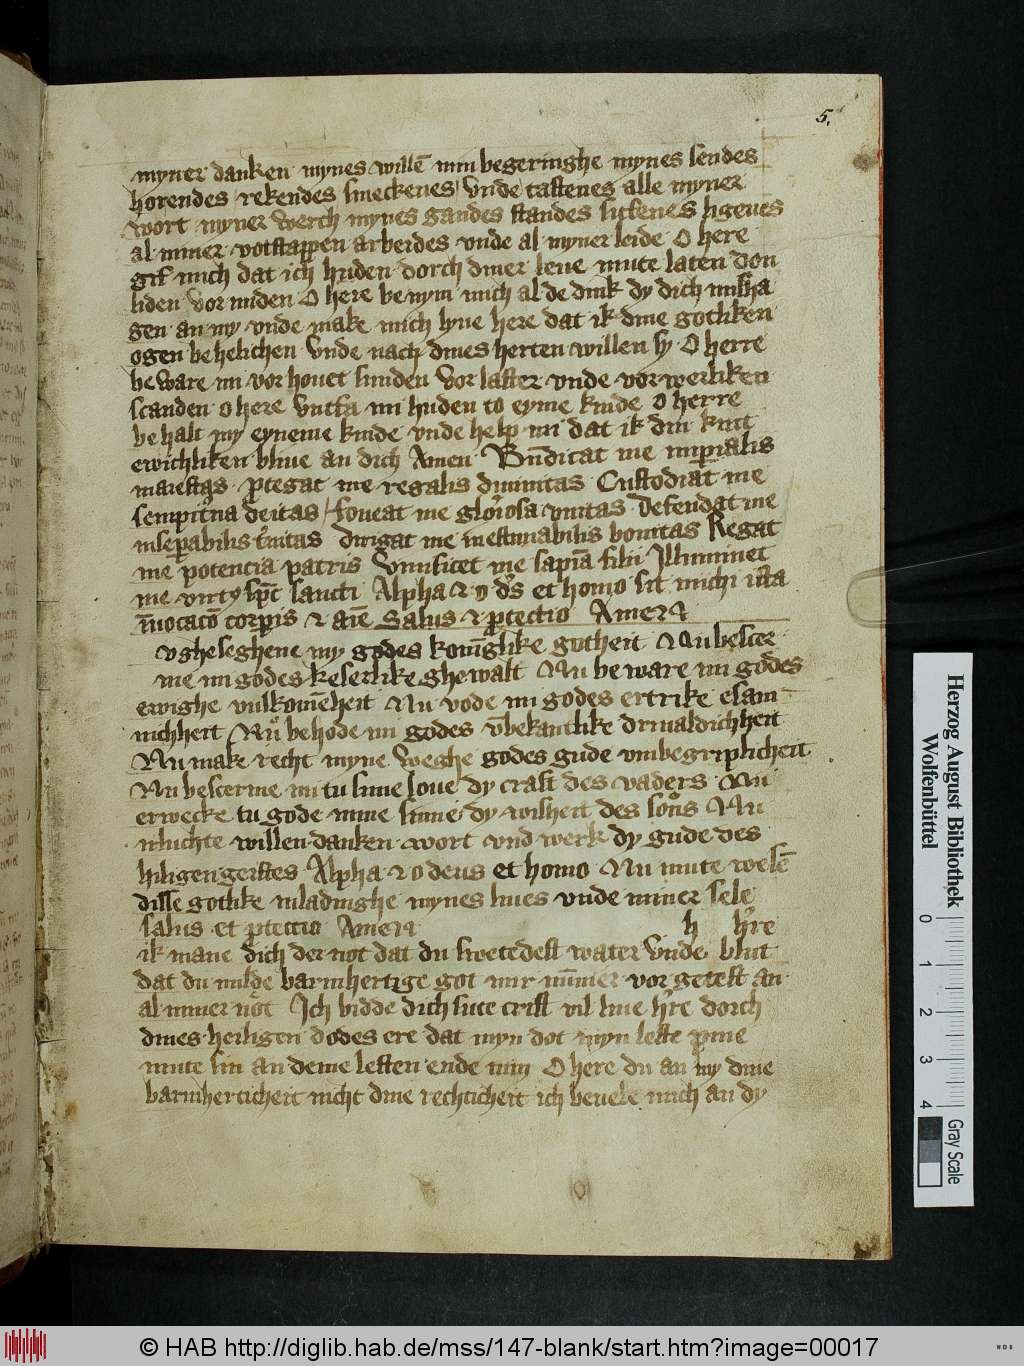 5.
myner danken mynes willē min begeringhe mynes sendes
horendes rekendes smeckenes vnde tastenes alle myner
wort myner werch mynes gandes standes sittenes ligenes
al miner votstappen arbeides vnde al myner leide O here
gif mich dat ich huden dorch diner leue mute laten don
liden vor miden O here benym mich al de dink dy dich misha
gen an my vnde make mich lyue here dat ik dine gotliken
ogen behelichen vnde nach dines herten willen sy O herre
beware mi vor houet sunden vor laster vnde vor werliken
scanden o here vntfa mi huden to eyme kinde O herre
behalt my eyneme kinde vnde help mi dat ik din kint
ewichliken bliue an dich Amen Bn̄dicat me imperialis
maiestas protegat me regalis diuinitas Custodiat me
sempitna deitas foueat me gloriosa vnitas Defendat me
inseparabilis trinitas dirigat me inestimabilis bonitas Regat
me potencia patris Viuificet me sapiā filii Illuminet
me virtus spc sancti Alpha et o ds et homo sit michi ista
īuocacō corpis et aīe Salus et ptectio Amen
vgheseghene my godes konīglike gotheit Nu bescer
me mi godes keserlike ghewalt Nu beware mi godes
ewighe vulkomēheit Nu vode mi godes ertrike esam
nichheit Nu behode mi godes vbekantlike driualdichheit
Nu make recht myne weghe godes gude vmbegriplicheit
Nu bescerme mi tu sime loue dy craft des vaders Nu
erwecke tu gode mine sinne dy wisheit des sons Nu
irluchte willen danken wort vnd werk dy gude des
hiligen geistes Alpha et o deus et homo Nu mute wesē
disse gotlike inladinghe mynes liues vnde miner sele
salus et ptectio Amen h hre
ik mane dich der not dat du swetedest water vnde blut
dat du milde barmhertige got mir nūmer vorgetest an
al miner not Ich bidde dich sute crist vil liue hre dorch
dines heiligen dodes ere dat myn dot myn leste pine
mute sin an deme lesten ende min O here du an my dine
barmherticheit nicht dine rechticheit ich beuele mich an dy
Herzog August Bibliothek
Wolfenbüttel
0 1 2 3 4
Gray Scale
© HAB http://diglib.hab.de/mss/147-blank/start.htm?image=00017